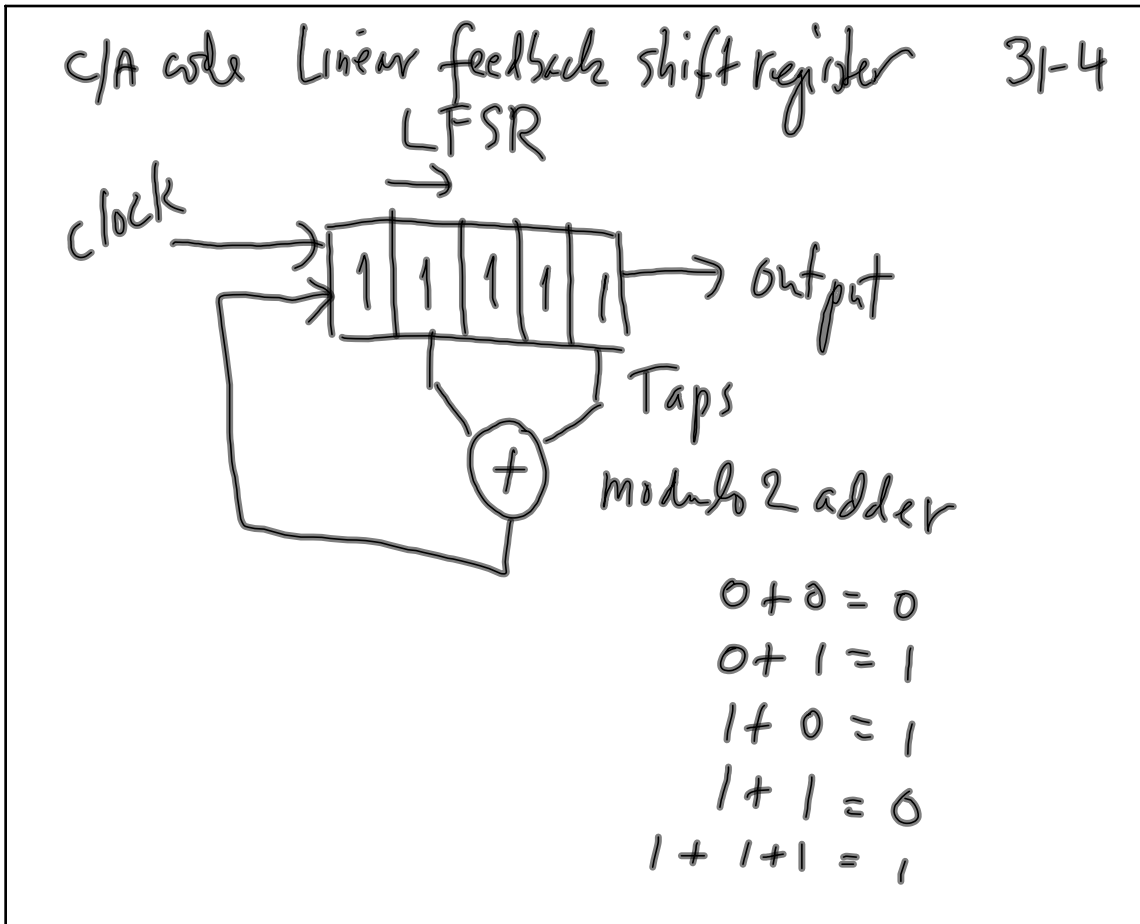 C/A code Linear feedback shift register 31-4
LFSR
clock
1 1 1 1 1
output
Taps
+
modulo 2 adder
0 + 0 = 0
0 + 1 = 1
1 + 0 = 1
1 + 1 = 0
1 + 1 + 1 = 1